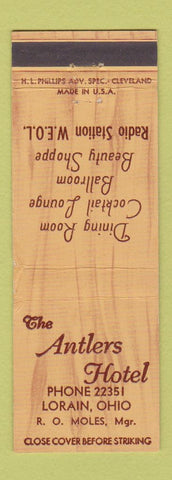 H. L. PHILLIPS ADV. SPEC. - CLEVELAND
MADE IN U.S.A.
Dining Room
Cocktail Lounge
Ballroom
Beauty Shoppe
Radio Station W.E.O.L.
The
Antlers
Hotel
PHONE 22351
LORAIN, OHIO
R. O. MOLES, Mgr.
CLOSE COVER BEFORE STRIKING